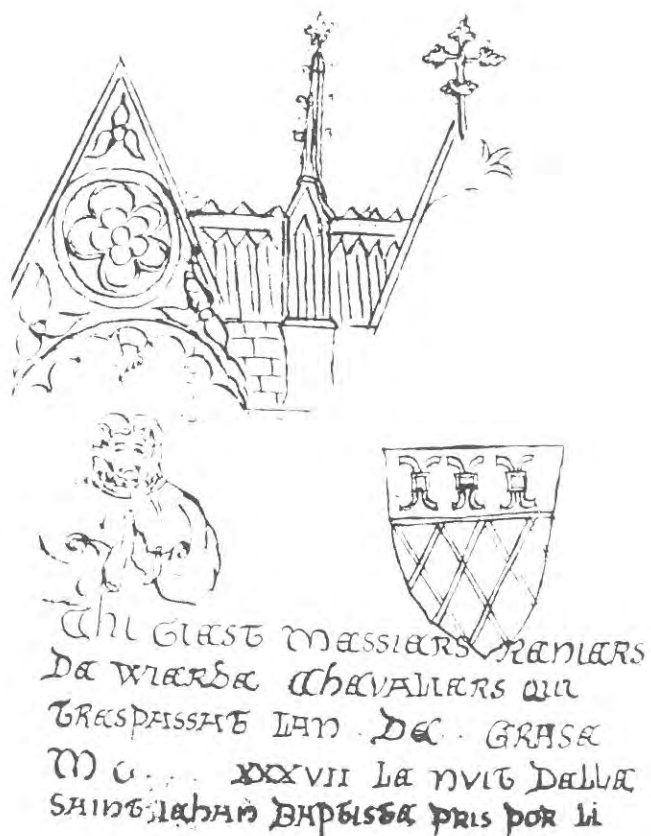 Chi GIEST MESSIERS RENIERS
DE WIERDE ChEVALIERS QUI
TRESPASSAT LAN . DE . GRASE
M C . . . XXXVII LE NVIT DELLE
SAINT IEhAN BAPTISTE PRIS POR LI